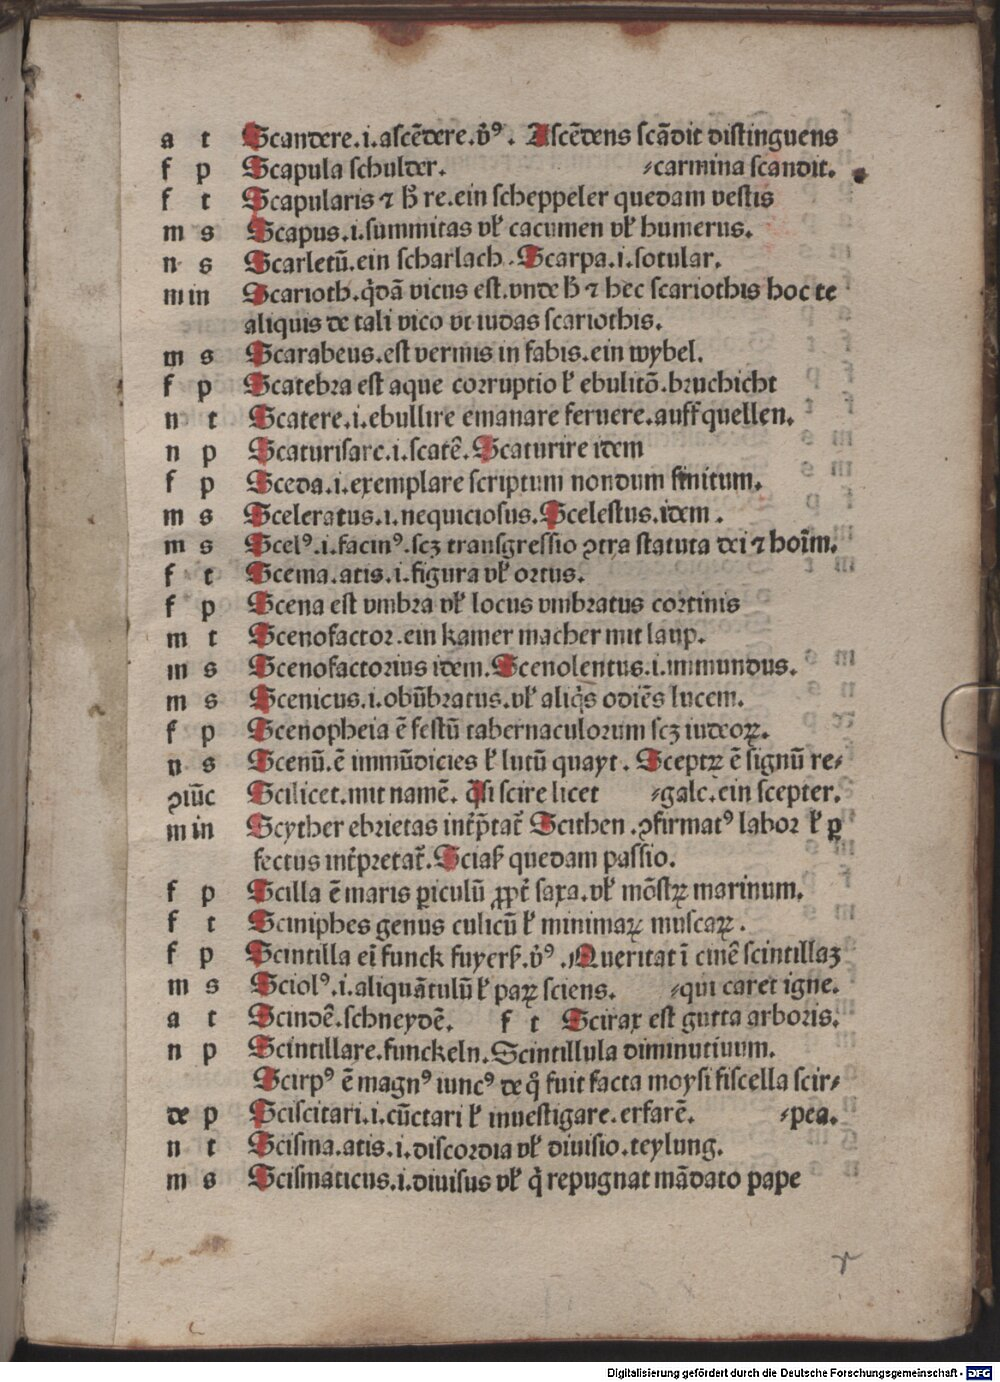 a t Scandere.i.ascēdere.v̉ꝰ. Ascēdens scādit distinguens
f p Scapula schulder. ⸗carmina scandit.
f t Scapularis ⁊ hͦ re.ein scheppeler quedam vestis
m s Scapus.i.summitas vl̕ cacumen vl̕ humerus.
n s Scarletū.ein scharlach.Scarpa.i.sotular.
m in Scarioth.q̇dā vicus est.vnde hͦ ⁊ hec scariothis hoc te
aliquis de tali vico vt iudas scariothis.
m s Scarabeus.est vermis in fabis.ein wybel.
f p Scatebra est aque corruptio l̕ ebulitō.bruchicht
n t Scatere.i.ebullire emanare feruere.auff quellen.
n p Scaturisare.i.scatē.Scaturire idem
f p Sceda.i.exemplare scriptum nondum finitum.
m s Sceleratus.i.nequiciosus.Scelestus.idem.
m s Scelꝰ.i.facinꝰ.scꝫ transgressio ꝯtra statuta dei ⁊ hoīm.
f t Scema.atis.i.figura vl̕ ortus.
f p Scena est vmbra vl̕ locus vmbratus cortinis
m t Scenofactor.ein kamer macher mit laup.
m s Scenofactorius idem.Scenolentus.i.immundus.
m s Scenicus.i.obūbratus.vl̕ aliq̇s odiēs lucem.
f p Scenopheia ē festū tabernaculorum scꝫ iudeoꝝ.
n s Scenū.ē immūdicies l̕ lutū quayt. Sceptꝝ ē signū re⸗
ꝯiūc Scilicet.mit namē. q̄si scire licet ⸗gale.ein scepter.
m in Scyther ebrietas int̕p̄tat̕ Scithen.ꝯfirmatꝰ labor l̕ ꝑ
fectus int̕pretat̕. quedam passio.
f p Scilla ē maris ꝑiculū ꝓpt̕ saxa.vl̕ mōstꝝ marinum.
f t Sciniphes genus culicū l̕ minimaꝝ muscaꝝ.
f p Scintilla ei funck v̉ꝰ.Queritat ī cinē scintillaꝫ
m s Sciolꝰ.i.aliquātulū l̕ paꝝ sciens. ⸗qui caret igne.
a t Scindē.schneydē. f t Scirax est gutta arboris.
n p Scintillare.funckeln.Scintillula diminutiuum.
Scirpꝰ ē magnꝰ iuncꝰ de qͦ fuit facta moysi fiscella scir⸗
de p Sciscitari.i.cūctari l̕ inuestigare.erfarē. ⸗pea.
n t Scisma.atis.i.discordia vl̕ diuisio.teylung.
m s Scismaticus.i.diuisus vl̕ q̇ repugnat mādato pape
Digitalisierung gefördert durch die Deutsche Forschungsgemeinschaft - DFG